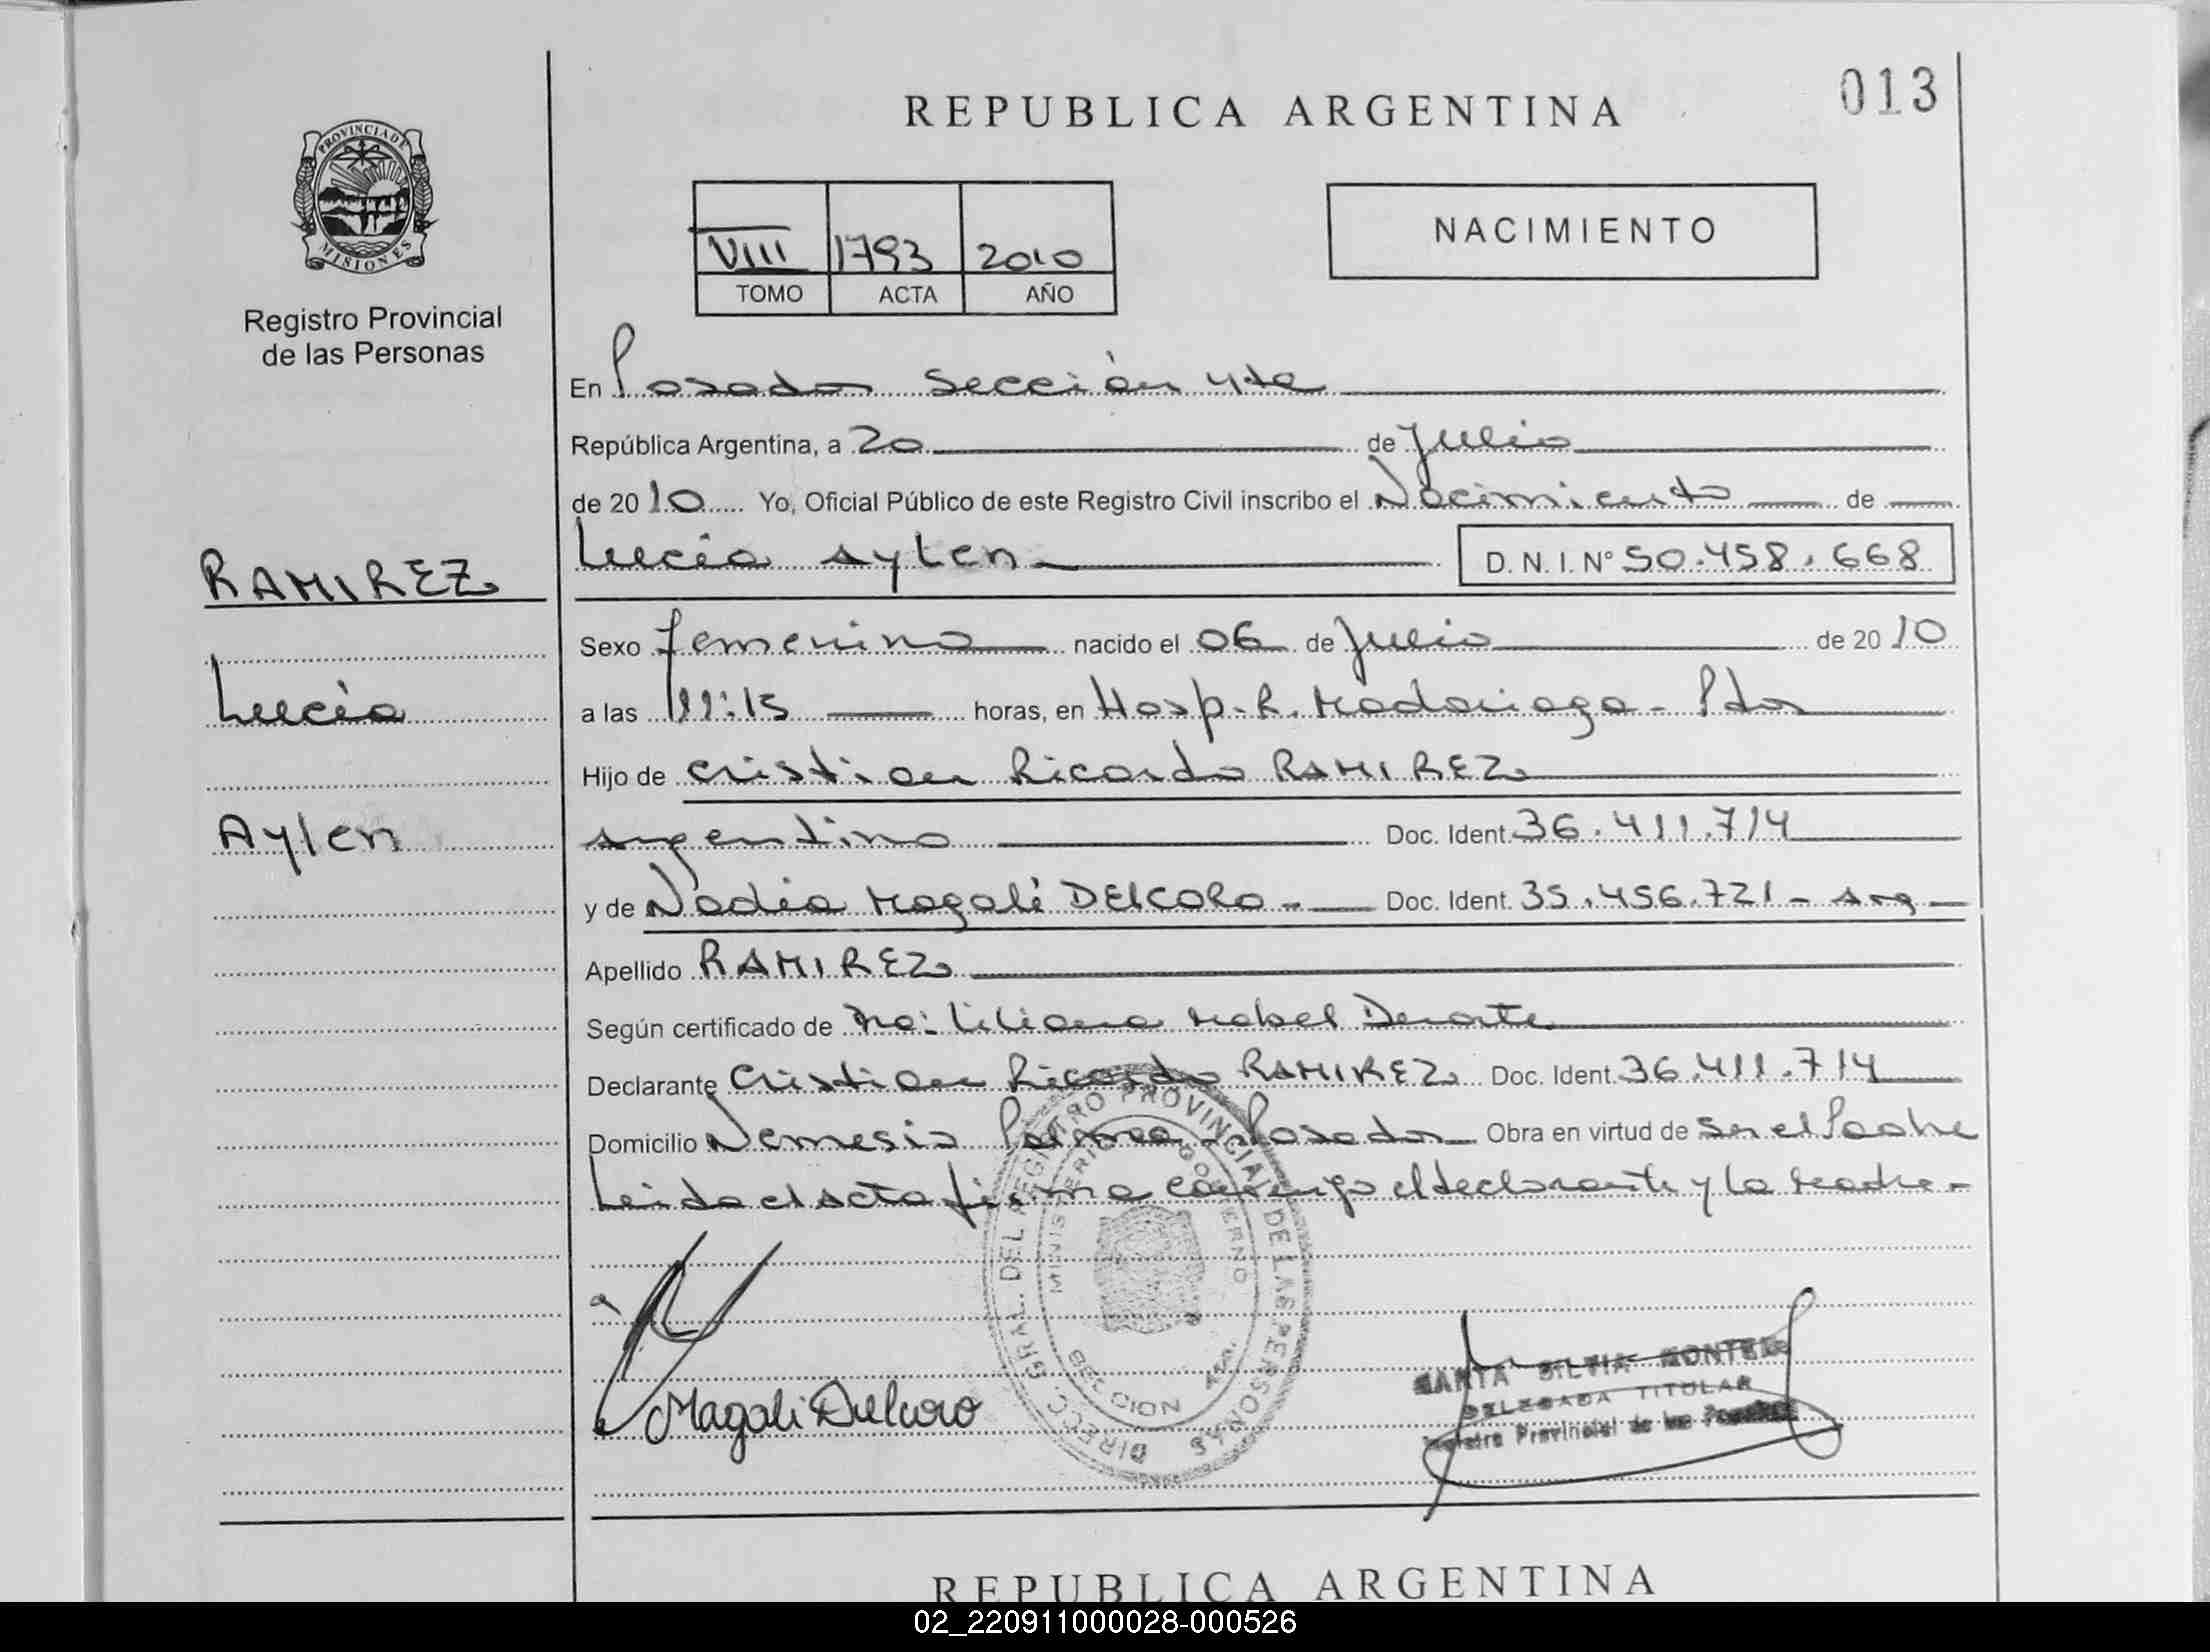 REPUBLICA ARGENTINA
013
PROVINCIA DE
MISIONES
Registro Provincial
de las Personas
VIII 1793 2010
TOMO ACTA AÑO
NACIMIENTO
En Posadas Sección 4ta
República Argentina, a 20 de Julio
de 2010 Yo, Oficial Público de este Registro Civil inscribo el Nacimiento de
Lucía Aylen D. N. I. Nº 50.458.668
RAMIREZ
Lucía
Aylen
Sexo femenino nacido el 06 de Julio de 2010
a las 11:15 horas, en Hosp. R. Madariaga - Pdas
Hijo de Cristian Ricardo RAMIREZ
argentino Doc. Ident. 36.411.714
y de Nadia Magalí DELCORO - Doc. Ident. 35.456.721 - Arg
Apellido RAMIREZ
Según certificado de Liliana Mabel
Declarante Cristian Ricardo RAMIREZ Doc. Ident. 36.411.714
Domicilio Nemesio Parma - Posadas Obra en virtud de Ser el Padre
Leida el Acta firma conmigo el declarante y la Madre -
DIRECC. GRAL. DEL REGISTRO PROVINCIAL DE LAS PERSONAS
MINISTERIO GOBIERNO
Magali Delcoro
SILVIA
DELEGADA TITULAR
Registro Provincial de las Personas
REPUBLICA ARGENTINA
02_220911000028-000526